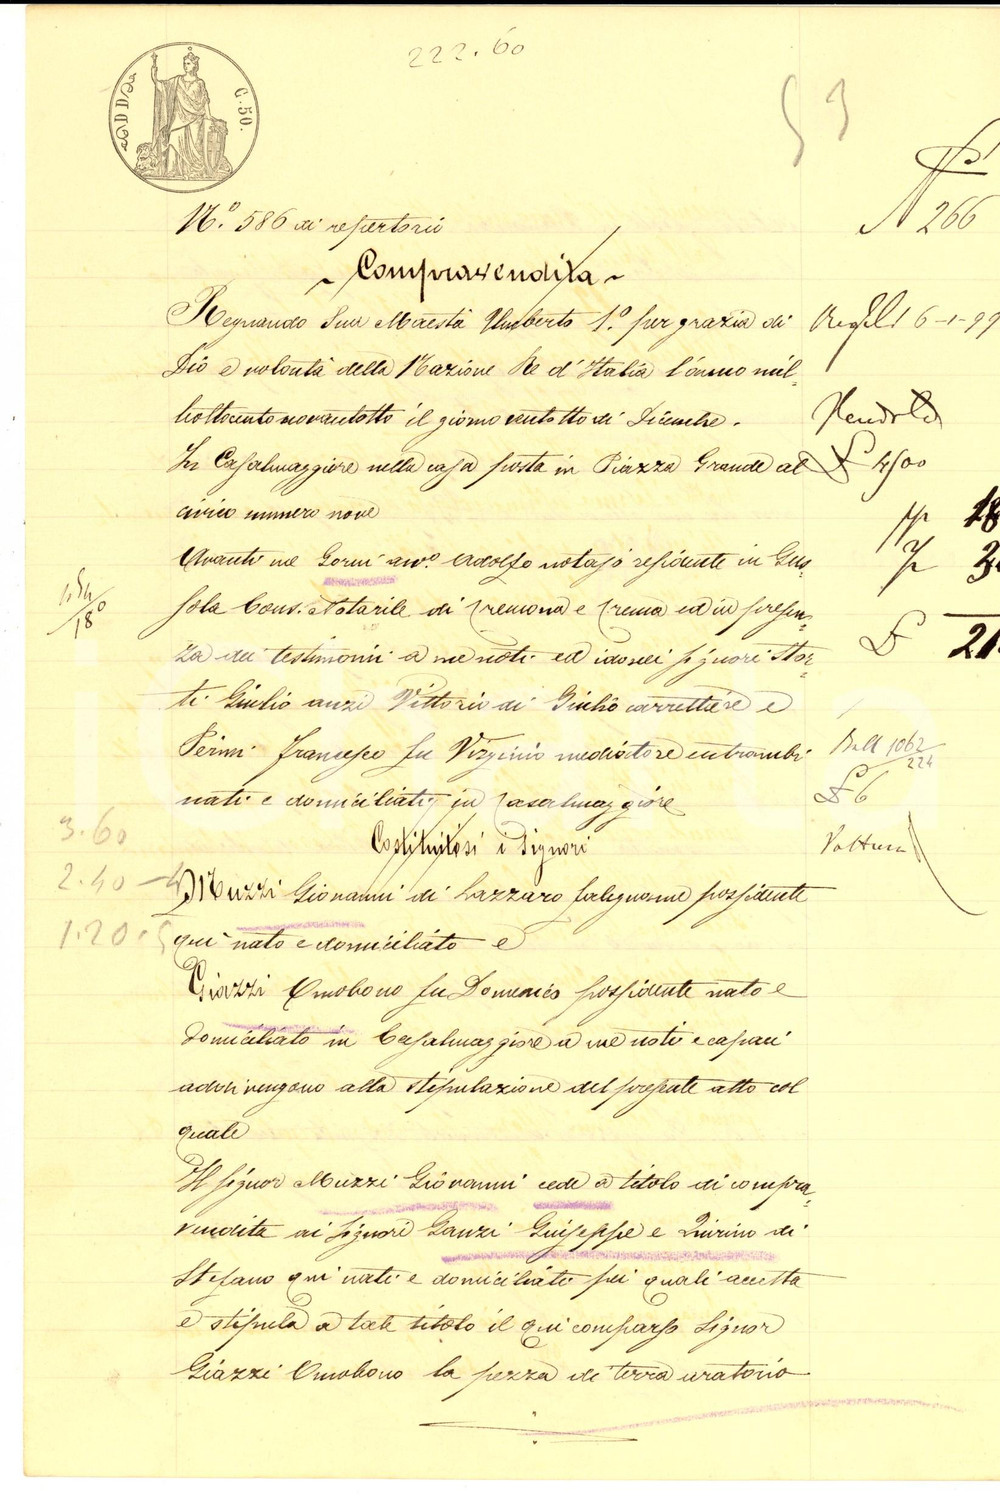 222.60
C. 50.
53
N.º 266
N.º 586 di repertorio
Compravendita
Regnando Sua Maestà Umberto 1.º per grazia di
Dio e volontà della Nazione Re d'Italia l'anno mil-
leottocentonovantotto il giorno ventotto di Dicembre.
In Casalmaggiore nella casa posta in Piazza Grande al
civico numero nove
Avanti me Gorni avv.º Adolfo notajo residente in Gus-
sola Cons. Notarile di Cremona e Crema ed in presen-
za dei testimonii a me noti ed idonei signori Stor-
ti Giulio anzi Vittorio di Giulio carrettiere e
Perini Francesco fu Virginio mediatore entrambi
nati e domiciliati in Casalmaggiore
Costituitisi i Signori
Muzzi Giovanni di Lazzaro falegname possidente
qui nato e domiciliato e
Giazzi Omobono fu Domenico possidente nato e
domiciliato in Casalmaggiore a me noti e capaci
addivengono alla stipulazione del presente atto col
quale
Il signor Muzzi Giovanni cede a titolo di compra-
vendita ai signori Ganzi Guiseppe e Quirino di
Stefano qui nati e domiciliati pei quali accetta
e stipula a tale titolo il qui comparso Signor
Giazzi Omobono la pezza di terra aratorio
6-1-99
£ 4500
18
£ 21
1062/224
£ 6
Voltura
3.60
2.40
1.20